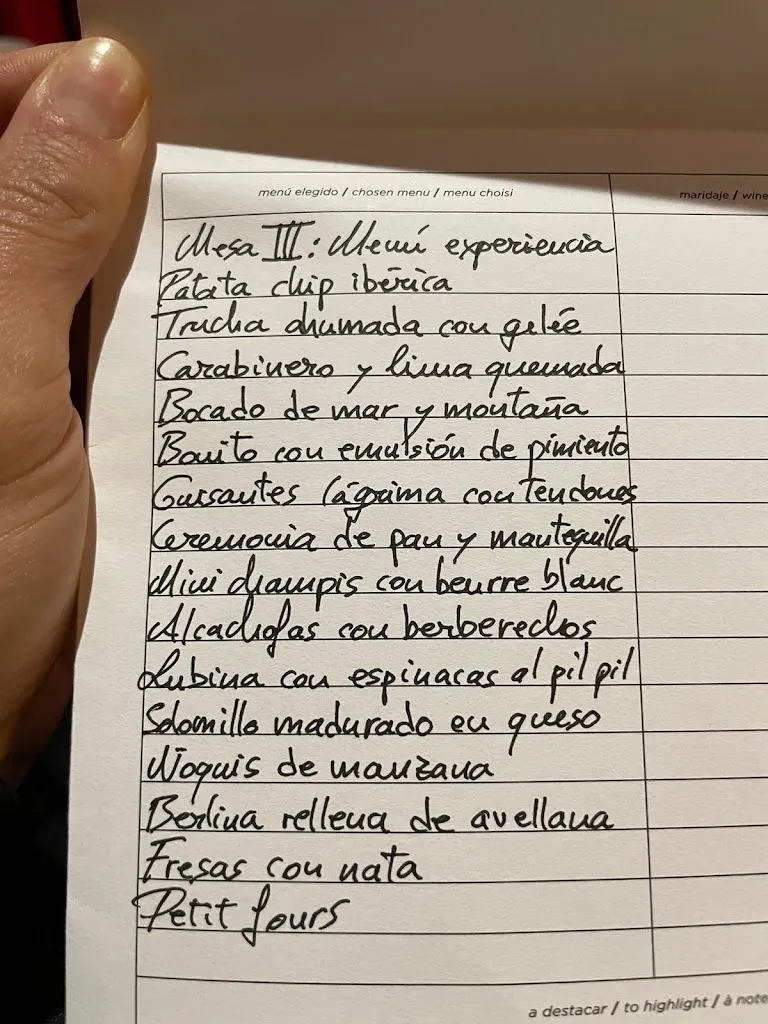 menú elegido / chosen menu / menu choisi
maridaje / wine
Mesa III: Menú experiencia
Patata chip ibérica
Trucha ahumada con gelée
Carabinero y lima quemada
Bocado de mar y montaña
Bonito con emulsión de pimiento
Guisantes lágrima con Tendones
Ceremonia de pan y mantequilla
Mini champis con beurre blanc
Alcachofas con berberechos
Lubina con espinacas al pil pil
Solomillo madurado en queso
Ñoquis de manzana
Berlina rellena de avellana
Fresas con nata
Petit fours
a destacar / to highlight / à note